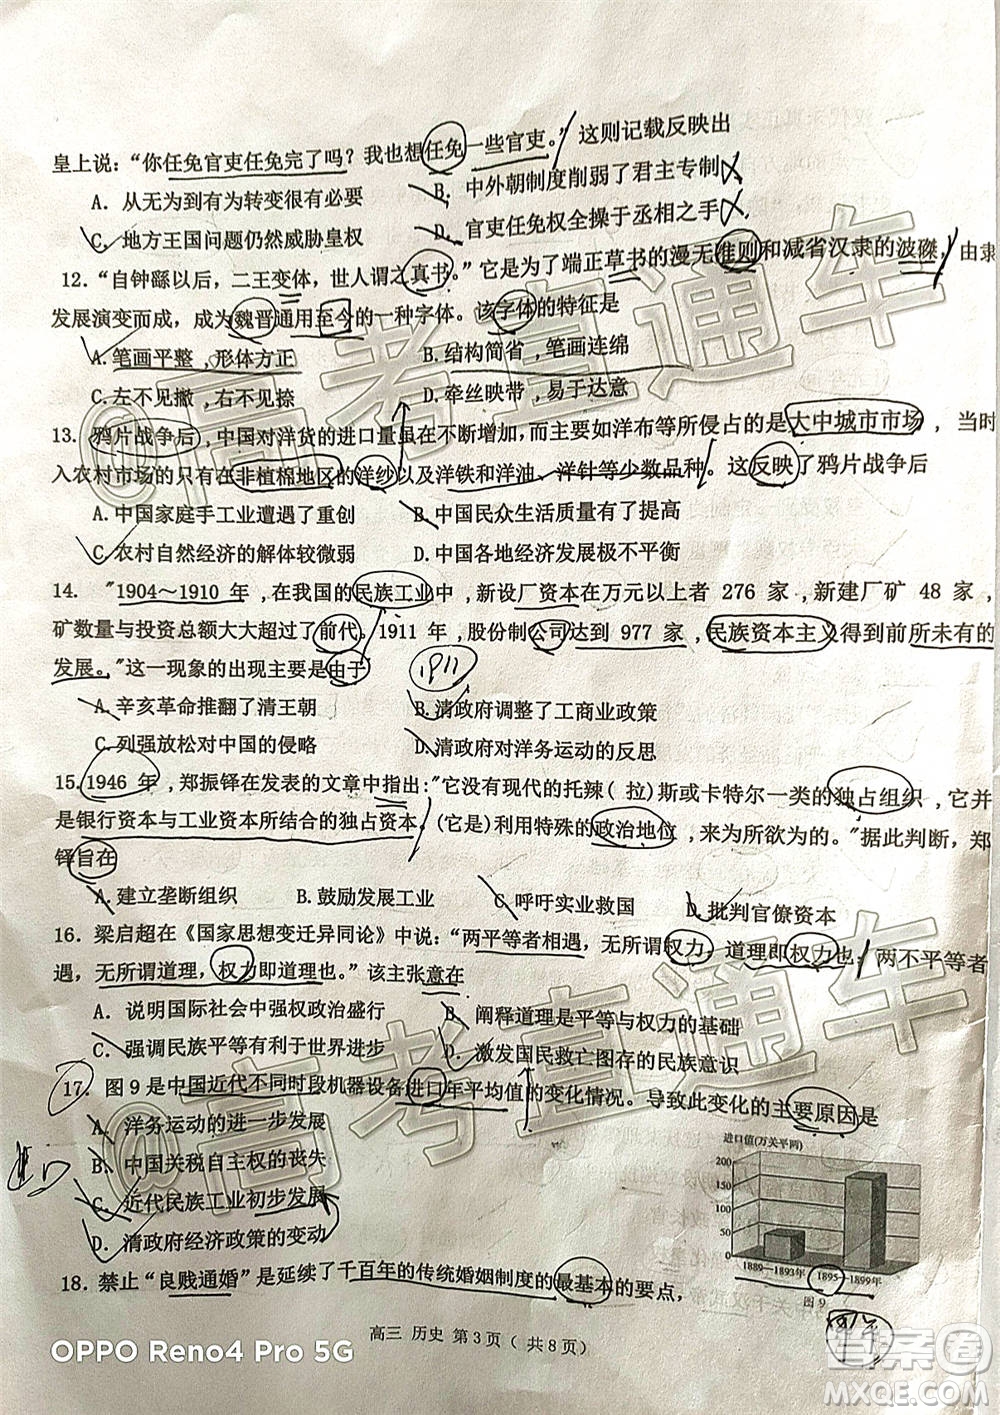 皇上说：“你任免官吏任免完了吗？我也想任免一些官吏。”这则记载反映出
A．从无为到有为转变很有必要 B．中外朝制度削弱了君主专制
C．地方王国问题仍然威胁皇权 D．官吏任免权全操于丞相之手
12.“自钟繇以后，二王变体，世人谓之真书。”它是为了端正草书的漫无准则和减省汉隶的波磔，由隶
发展演变而成，成为魏晋通用至今的一种字体。该字体的特征是
A.笔画平整，形体方正 B.结构简省，笔画连绵
C.左不见撇，右不见捺 D.牵丝映带，易于达意
13. 鸦片战争后，中国对洋货的进口量虽在不断增加，而主要如洋布等所侵占的是大中城市市场，当时
入农村市场的只有在非植棉地区的洋纱以及洋铁和洋油、洋针等少数品种。这反映了鸦片战争后
A.中国家庭手工业遭遇了重创 B.中国民众生活质量有了提高
C.农村自然经济的解体较微弱 D.中国各地经济发展极不平衡
14. "1904～1910 年，在我国的民族工业中，新设厂资本在万元以上者 276 家，新建厂矿 48 家，
矿数量与投资总额大大超过了前代。1911 年，股份制公司达到 977 家，民族资本主义得到前所未有的
发展。"这一现象的出现主要是由于
1911
A.辛亥革命推翻了清王朝 B.清政府调整了工商业政策
C.列强放松对中国的侵略 D.清政府对洋务运动的反思
15.1946 年，郑振铎在发表的文章中指出："它没有现代的托辣（ 拉）斯或卡特尔一类的独占组织，它并
是银行资本与工业资本所结合的独占资本。(它是)利用特殊的政治地位，来为所欲为的。"据此判断，郑
铎旨在
A.建立垄断组织 B.鼓励发展工业 C.呼吁实业救国 D.批判官僚资本
16．梁启超在《国家思想变迁异同论》中说：“两平等者相遇，无所谓权力，道理即权力也；两不平等者
遇，无所谓道理，权力即道理也。”该主张意在
A．说明国际社会中强权政治盛行 B．阐释道理是平等与权力的基础
C．强调民族平等有利于世界进步 D．激发国民救亡图存的民族意识
17．图 9 是中国近代不同时段机器设备进口年平均值的变化情况。导致此变化的主要原因是
A．洋务运动的曲折发展
B．中国关税自主权的丧失
C．近代民族工业初步发展
D．清政府经济政策的变动
进口值(万关平两)
200
150
100
50
0
1889—1893年 1895—1899年
图 9
18．禁止“良贱通婚”是延续了千百年的传统婚姻制度的最基本的要点，
高三 历史 第 3 页（ 共 8 页）
OPPO Reno4 Pro 5G
@高考直通车
@高考直通车
答案圈
MXQE.COM